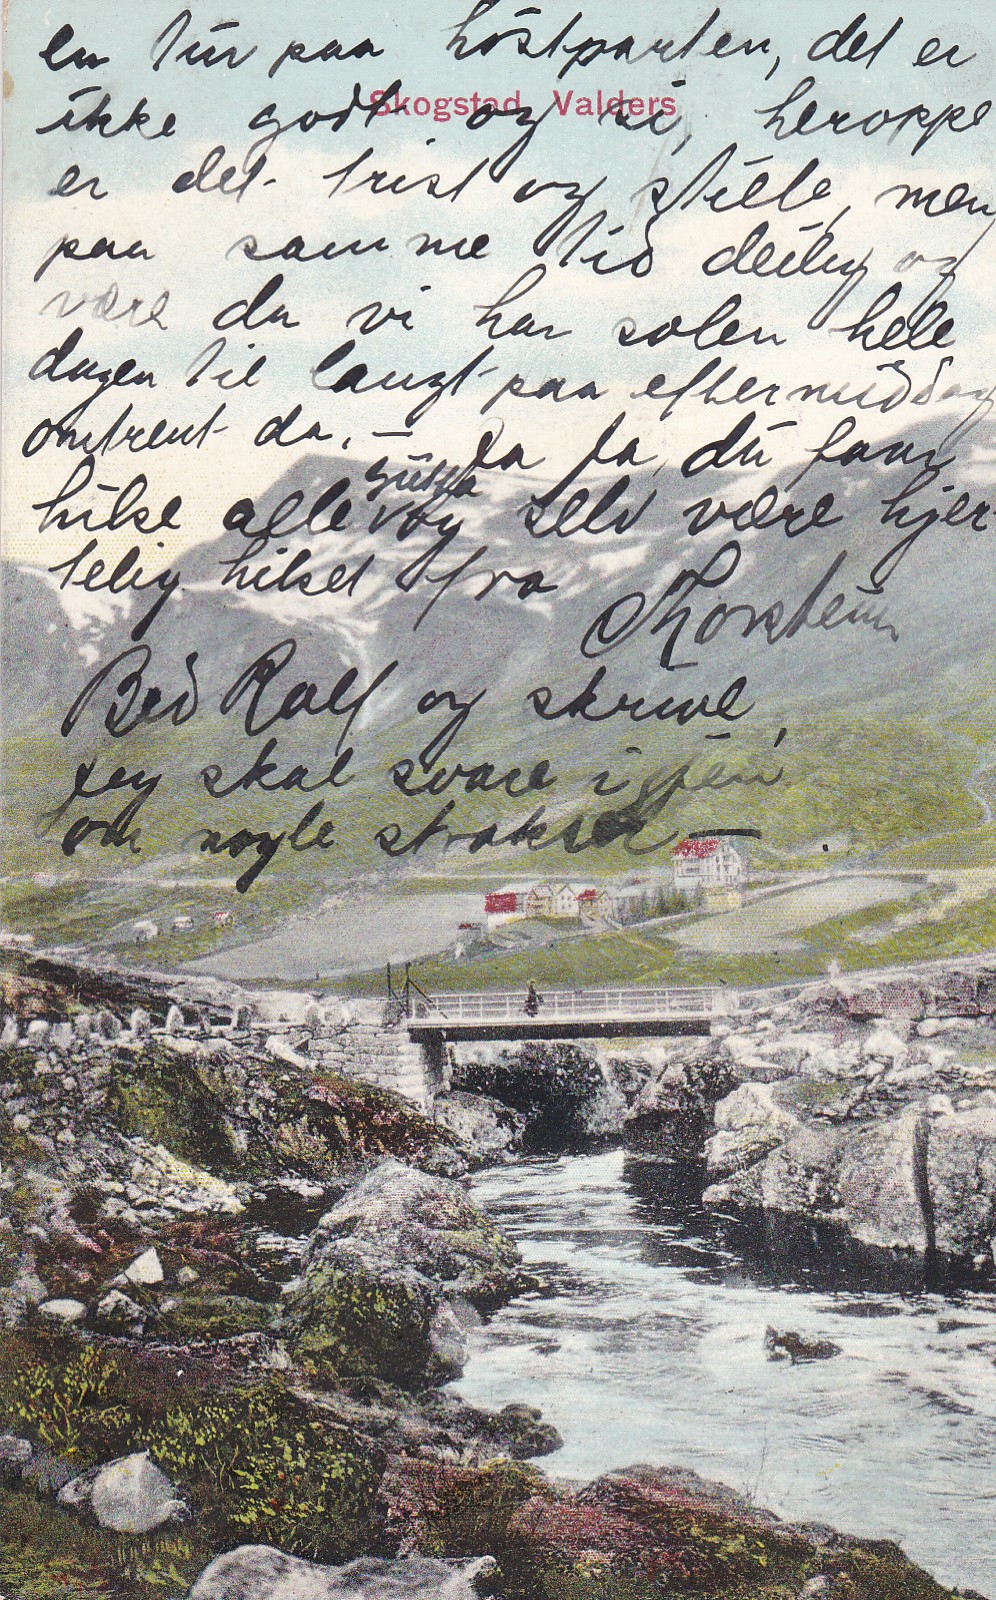 en tür paa höstparten, det er
Skogstad, Valders
ikke godt og si, heroppe
er det trist og stille, men
paa samme tid deilig og
være da vi har solen hele
dagen til langt paa eftermiddag
omtrent da. – Ja Ja, dü faar
gütta
hilse alle og selv være hjer
telig hilset fra
Thorstein
Bed Ralf og skrive,
jeg skal svare igjen
om nogle strakser —.